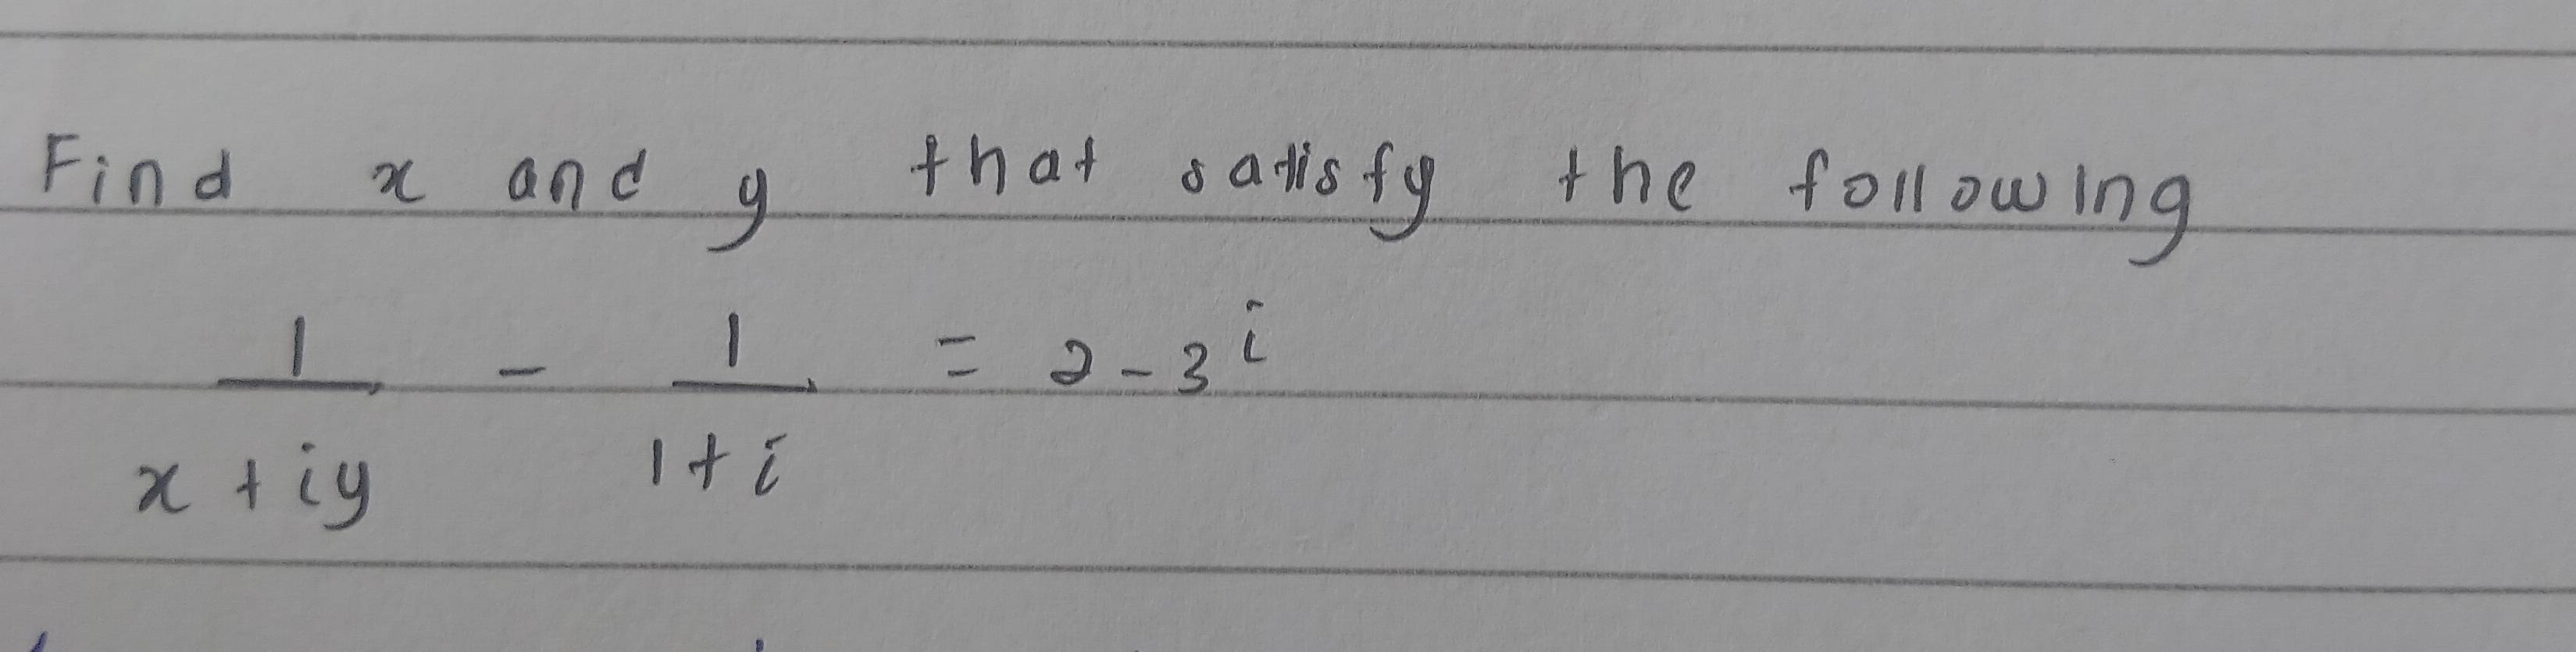 Find x and y that satisfy the following
1/(x + iy) - 1/(1+i) = 2-3^i